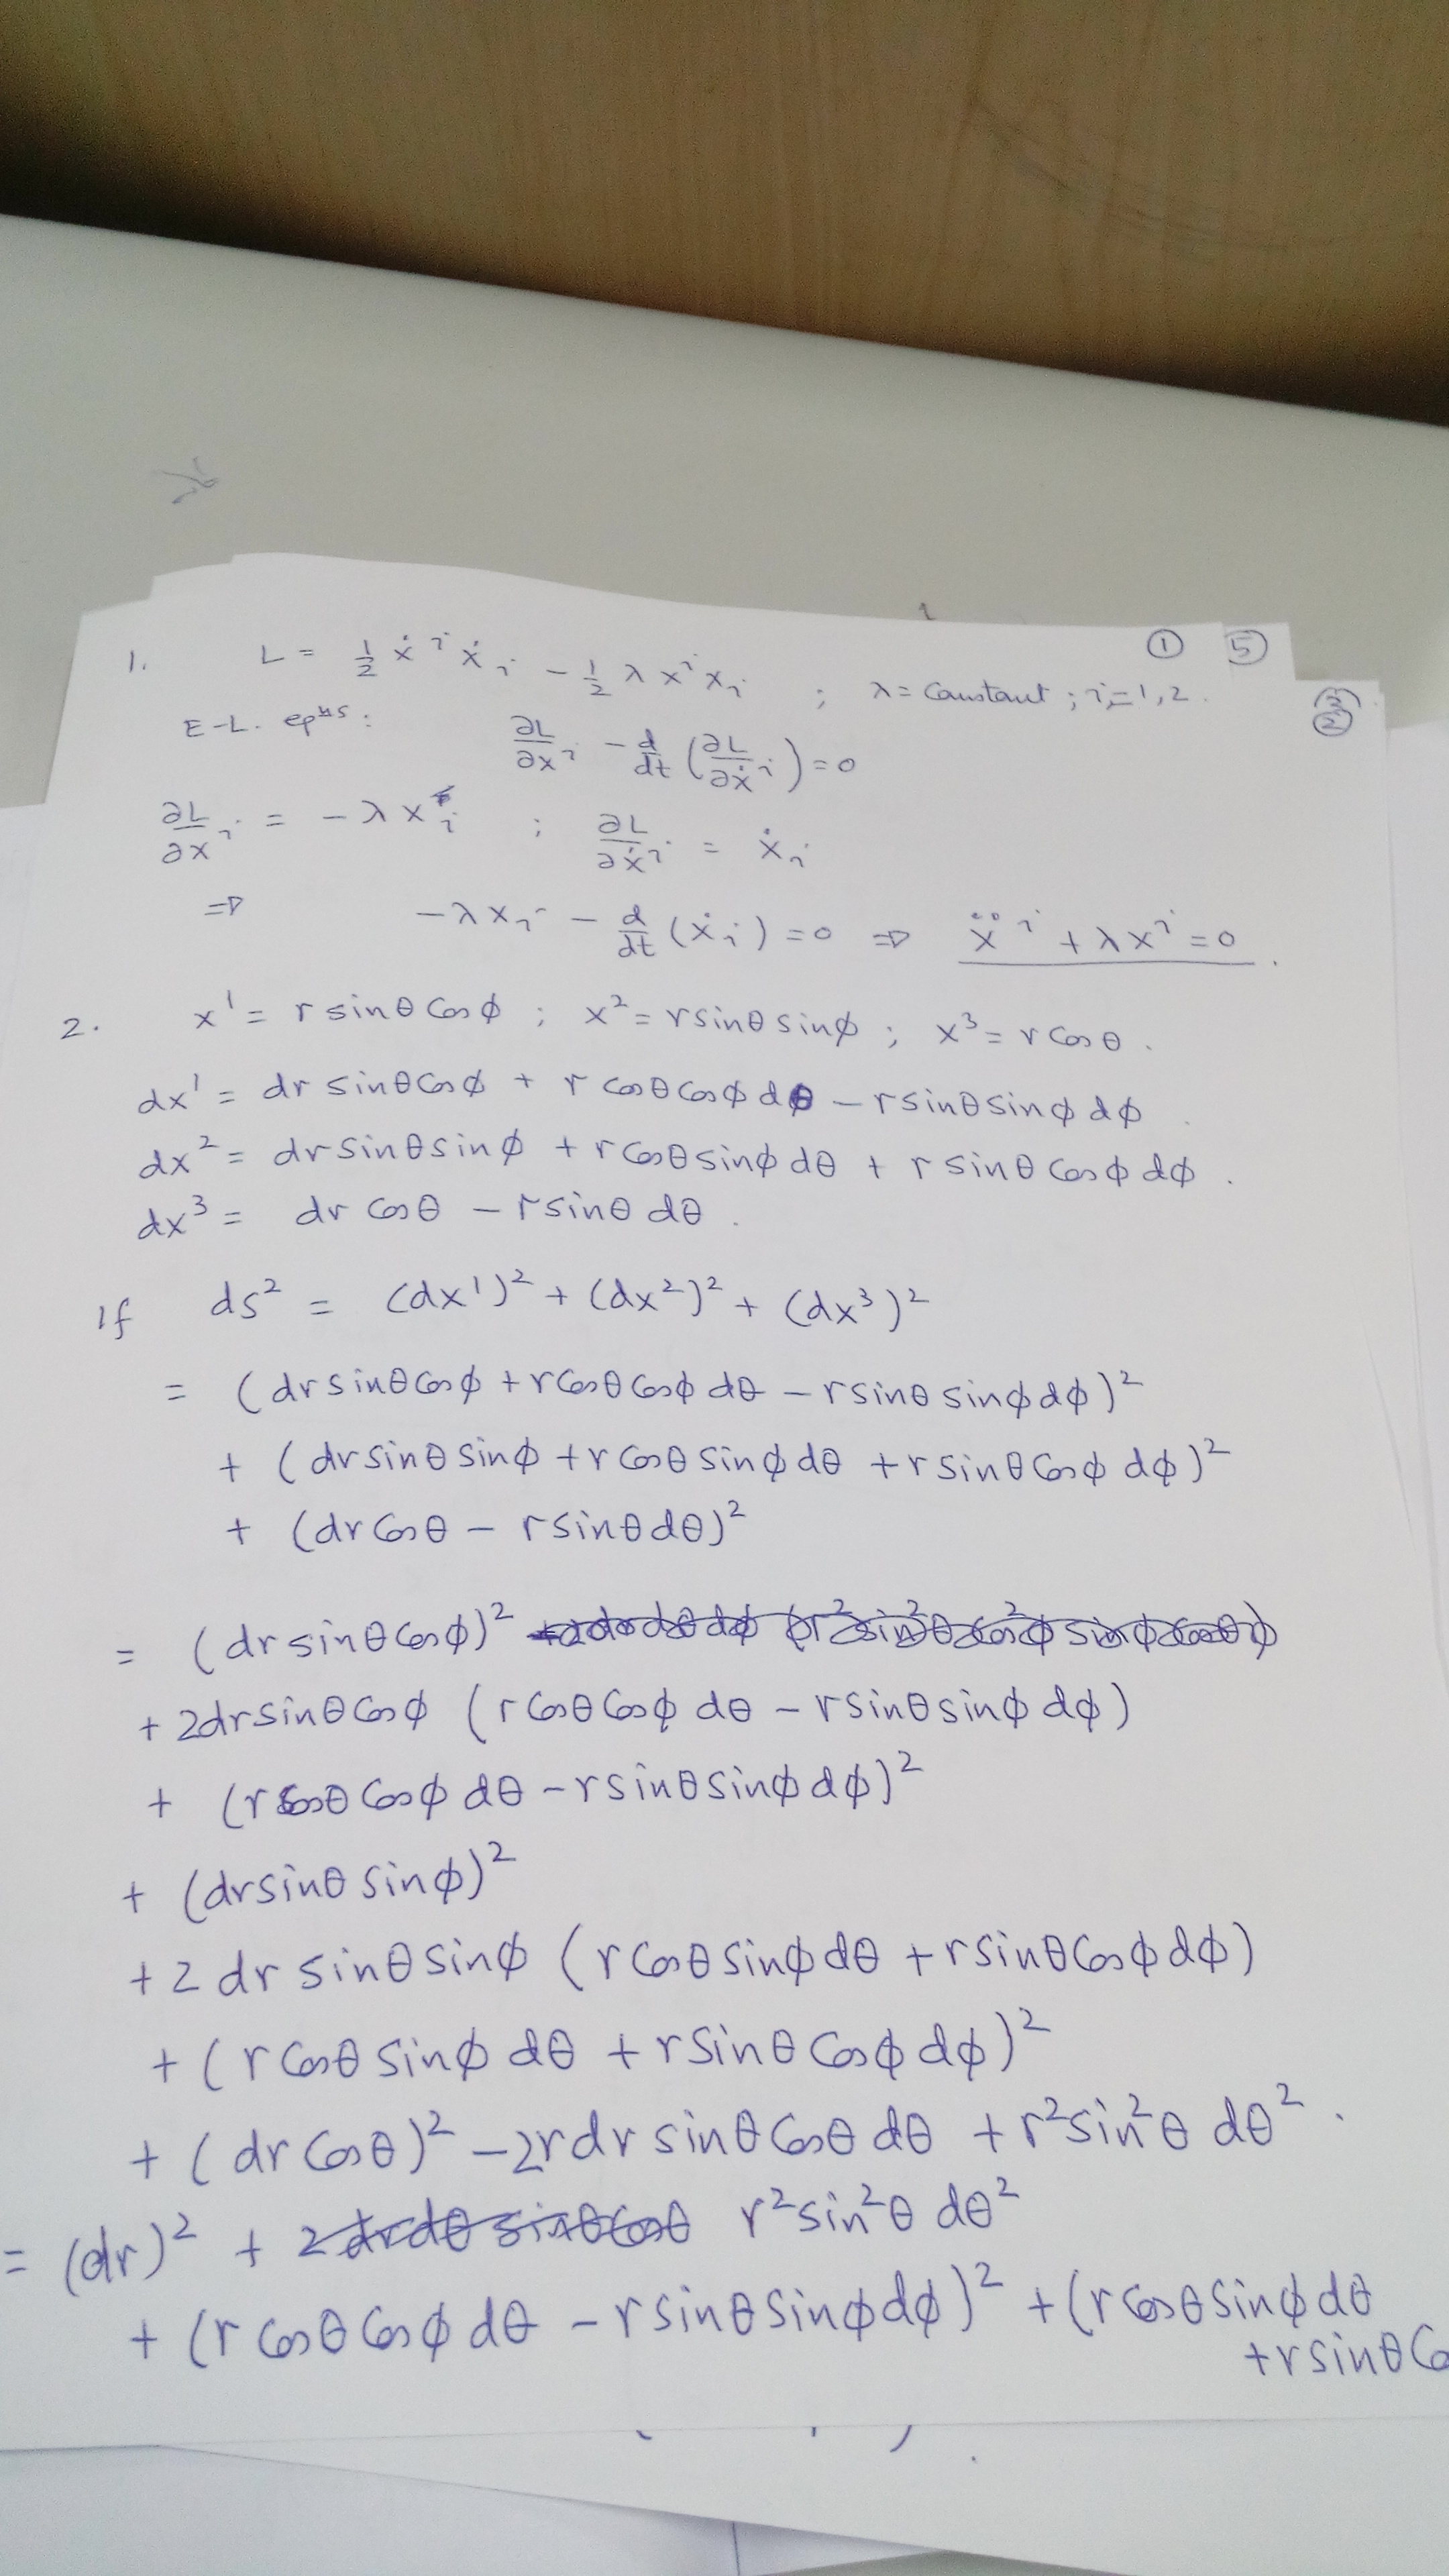 ① ⑤
1. L = ½ ẋⁱ ẋᵢ - ½ λ xⁱ xᵢ ; λ = Constant ; i = 1, 2.
E-L. eqⁿˢ : ∂L/∂xⁱ - d/dt (∂L/∂ẋⁱ) = 0
∂L/∂xⁱ = - λ xᵢ ; ∂L/∂ẋⁱ = ẋᵢ
⇒ - λ xᵢ - d/dt (ẋᵢ) = 0 ⇒ ẍⁱ + λ xⁱ = 0 .
2. x¹ = r sinθ Cosϕ ; x² = r sinθ sinϕ ; x³ = r Cosθ .
dx¹ = dr sinθ Cosϕ + r Cosθ Cosϕ dθ - r sinθ sinϕ dϕ .
dx² = dr sinθ sinϕ + r Cosθ sinϕ dθ + r sinθ Cosϕ dϕ .
dx³ = dr Cosθ - r sinθ dθ .
If ds² = (dx¹)² + (dx²)² + (dx³)²
= (dr sinθ Cosϕ + r Cosθ Cosϕ dθ - r sinθ sinϕ dϕ)²
+ (dr sinθ sinϕ + r Cosθ sinϕ dθ + r sinθ Cosϕ dϕ)²
+ (dr Cosθ - r sinθ dθ)²
= (dr sinθ Cosϕ)²
+ 2dr sinθ Cosϕ (r Cosθ Cosϕ dθ - r sinθ sinϕ dϕ)
+ (r Cosθ Cosϕ dθ - r sinθ sinϕ dϕ)²
+ (dr sinθ sinϕ)²
+ 2 dr sinθ sinϕ (r Cosθ sinϕ dθ + r sinθ Cosϕ dϕ)
+ (r Cosθ sinϕ dθ + r sinθ Cosϕ dϕ)²
+ (dr Cosθ)² - 2r dr sinθ Cosθ dθ + r² sin²θ dθ² .
= (dr)² + r² sin²θ dθ²
+ (r Cosθ Cosϕ dθ - r sinθ sinϕ dϕ)² + (r Cosθ sinϕ dθ
+ r sinθ Co